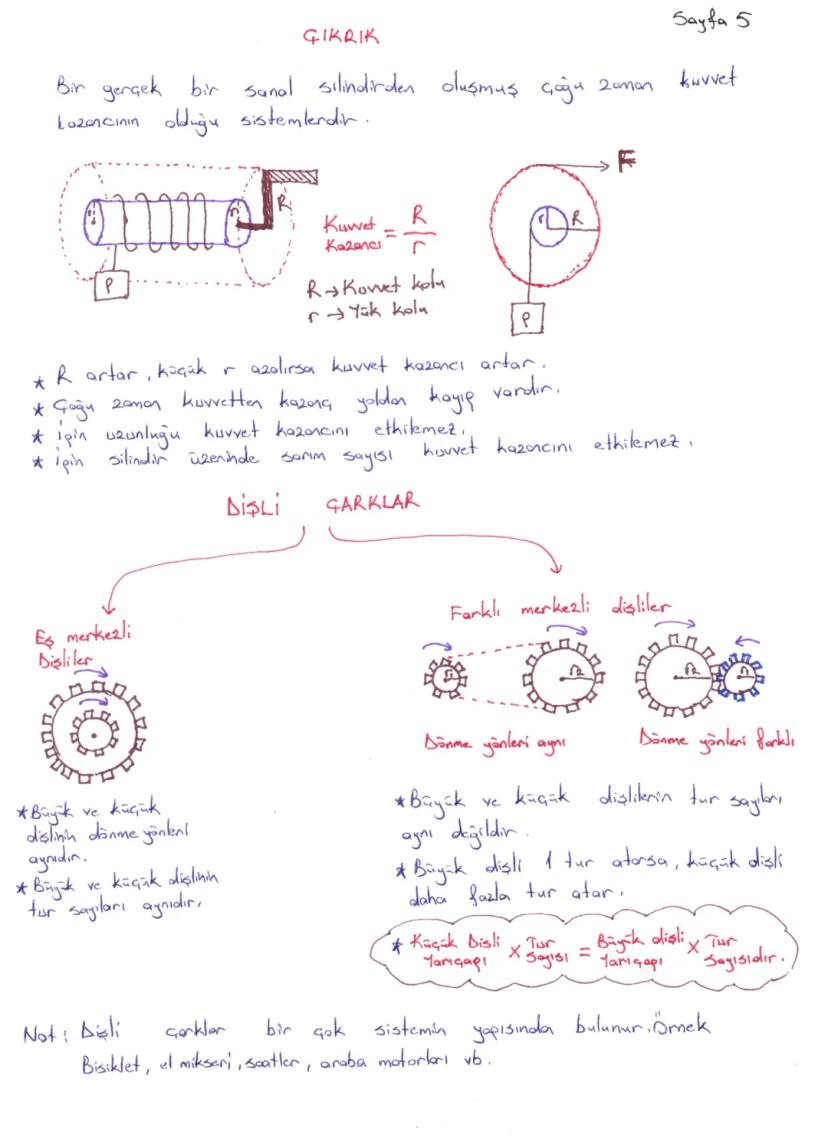 Sayfa 5
ÇIKRIK
Bir gerçek bir sanal silindirden oluşmuş çoğu zaman kuvvet
kazancının olduğu sistemlerdir.
F
R
r
r
r
R
Kuvvet Kazancı = R / r
P
R → Kuvvet kolu
r → Yük kolu
P
* R artar, küçük r azalırsa kuvvet kazancı artar.
* Çoğu zaman kuvvetten kazanç yoldan kayıp vardır.
* İpin uzunluğu kuvvet kazancını etkilemez.
* İpin silindir üzerinde sarım sayısı kuvvet kazancını etkilemez.
DİŞLİ ÇARKLAR
Eş merkezli
Dişliler
Farklı merkezli dişliler
r1
r2
r2
r1
Dönme yönleri aynı
Dönme yönleri farklı
* Büyük ve küçük
dişlinin dönme yönleri
aynıdır.
* Büyük ve küçük dişlinin
tur sayıları aynıdır,
* Büyük ve küçük dişlilerin tur sayıları
aynı değildir.
* Büyük dişli 1 tur atarsa, küçük dişli
daha fazla tur atar.
* Küçük Dişli Yarıçapı x Tur Sayısı = Büyük dişli Yarıçapı x Tur Sayısıdır.
Not: Dişli çarklar bir çok sistemin yapısında bulunur. Örnek
Bisiklet, el mikseri, saatler, araba motorları vb.